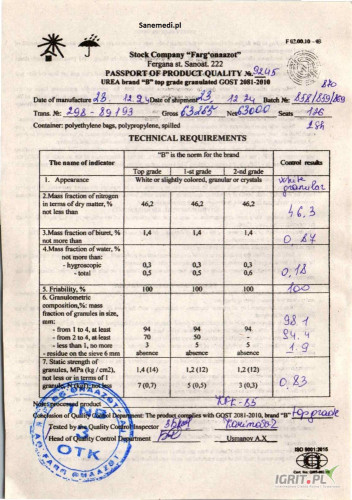 Sanemedi.pl
F 02.00.10 - 46
Stock Company "Farg'onaazot"
Fergana st. Sanoat. 222
PASSPORT OF PRODUCT QUALITY № 9245
UREA brand "B" top grade granulated GOST 2081-2010
Date of manufacture 23. 12. 24 Date of shipment 23. 12 24 Batch № 858/859/869
Trans. № 298-89193 Gross 63265 Net 63000 Seats 126
Container: polyethylene bags, polypropylene, spilled
TECHNICAL REQUIREMENTS
The name of indicator
"B" is the norm for the brand
Control results
Top grade 1-st grade 2-nd grade
1. Appearance White or slightly colored, granular or crystals white granular
2.Mass fraction of nitrogen
in terms of dry matter, % 46,2 46,2 46,2 46,3
not less than
3.Mass fraction of biuret, % 1,4 1,4 1,4
not more than
4.Mass fraction of water, %
not more than:
- hygroscopic 0,3 0,3 0,3
- total 0,5 0,5 0,6 0,18
5. Friability, % 100 100 100 100
6. Granulometric
composition,%: mass
fraction of granules in size,
mm:
- from 1 to 4, at least 94 94 94 98.1
- from 2 to 4, at least 70 50 - 94.4
- less than 1, no more 3 5 5 1.9
- residue on the sieve 6 mm absence absence absence
7. Static strength of
granules, MPa (kg / cm2), 1,4 (14) 1,2 (12) 1,2 (12)
not less or in terms of 1
granule, N (kgf), not less 7 (0,7) 5 (0,5) 3 (0,3) 0,83
Note: processed product
Conclusion of Quality Control Department: The product complies with GOST 2081-2010, brand "B" top grade
Tested by the Quality Control Inspector Karimova
Head of Quality Control Department Usmanov A.X
TNB
3
OTK
ISO 9001:2015
IGRIT.PL